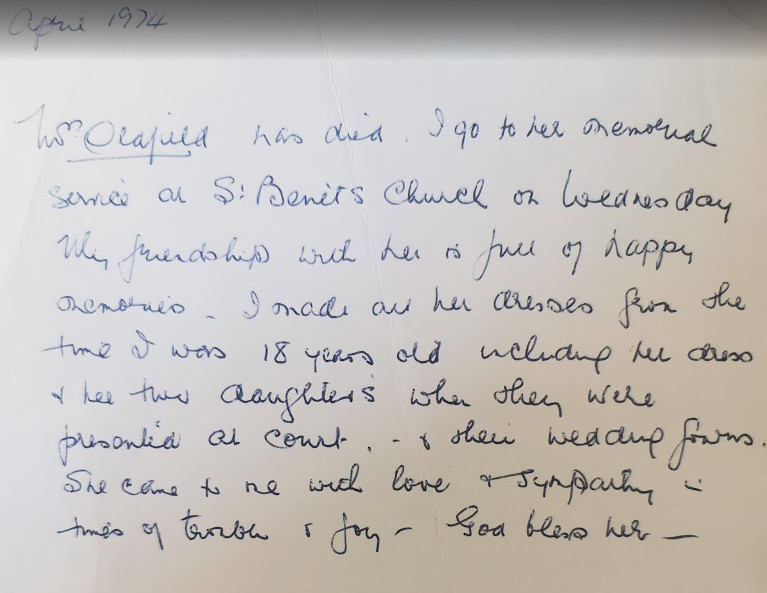 April 1974
Mrs Oldfield has died. I go to her memorial
service at St Benets Church on Wednesday
My friendship with her is full of happy
memories - I made all her dresses from the
time I was 18 years old including her dress
& her two daughters when they were
presented at court. - & their wedding gowns.
She came to me with love & sympathy in
times of trouble & joy - God bless her —